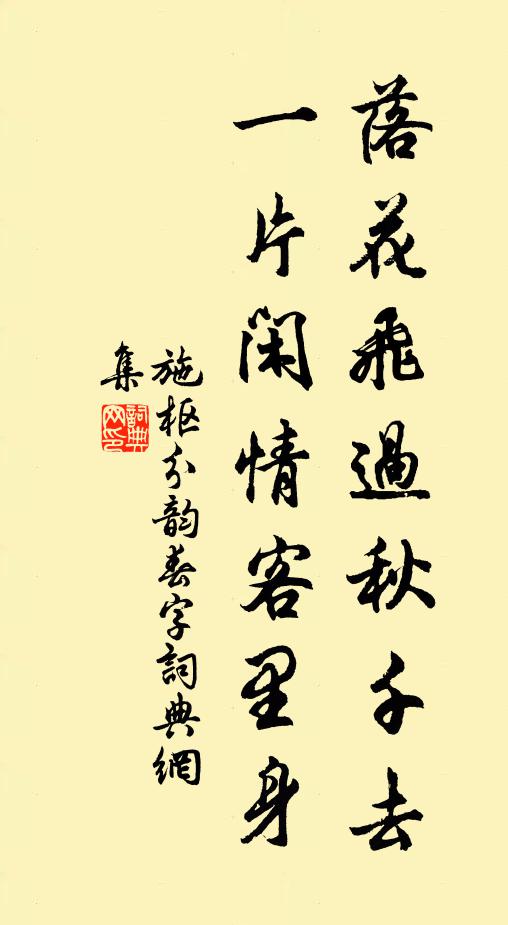 落花飛過秋千去
一片閑情客里身
施枢分韵春字詞典網
集
詞典
网印